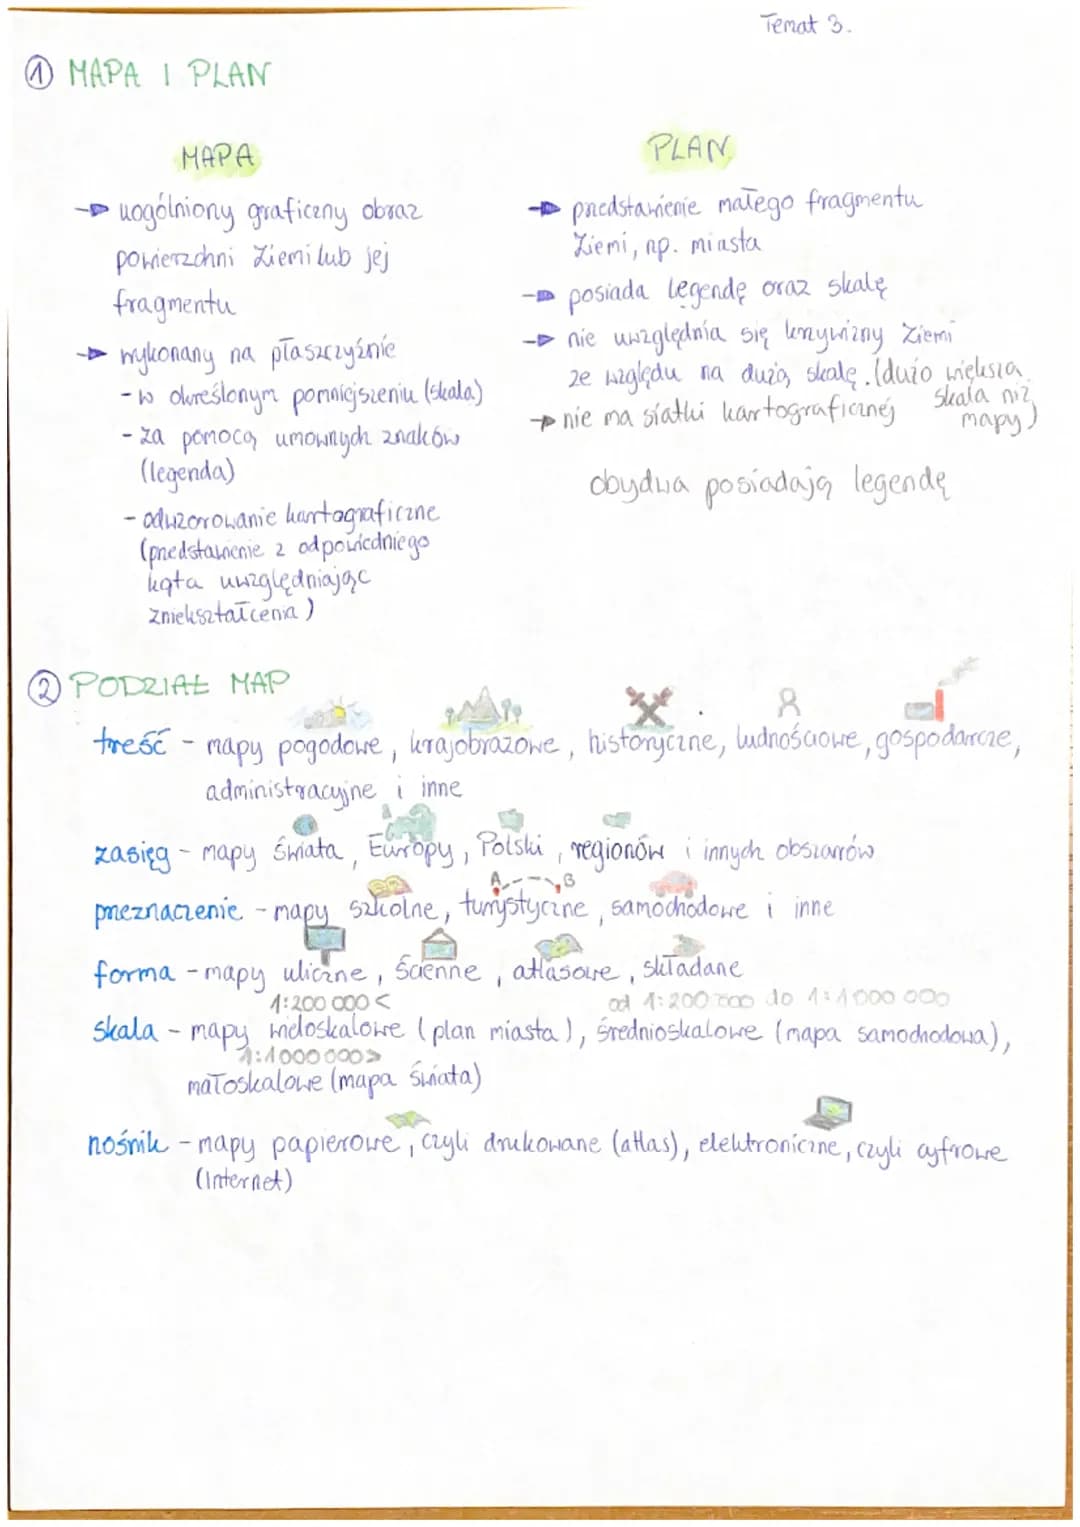 Temat 3.
① MAPA I PLAN
MAPA
→ uogólniony graficzny obraz
powierzchni Ziemi lub jej
fragmentu
→ wykonany na płaszczyźnie
- w określonym pomniejszeniu (skala)
- za pomocą umownych znaków
(legenda)
- odwzorowanie kartograficzne
(przedstawienie z odpowiedniego
kąta uwzględniając
zniekształcenia)
PLAN
→ przedstawienie małego fragmentu
Ziemi, np. miasta
→ posiada legendę oraz skalę
→ nie uwzględnia się krzywizny Ziemi
ze względu na dużą skalę. (dużo większa
skala niż
mapy)
→ nie ma siatki kartograficznej
obydwa posiadają legendę
② PODZIAŁ MAP
treść - mapy pogodowe, krajobrazowe, historyczne, ludnościowe, gospodarcze,
administracyjne i inne
zasięg - mapy świata, Europy, Polski, regionów i innych obszarów
A B
przeznaczenie - mapy szkolne, turystyczne, samochodowe i inne
forma - mapy uliczne, ścienne, atlasowe, składane
1:200 000 < od 1:200 000 do 1:1 000 000
skala - mapy wieloskalowe (plan miasta), średnioskalowe (mapa samochodowa),
1:1 000 000 >
małoskalowe (mapa świata)
nośnik - mapy papierowe, czyli drukowane (atlas), elektroniczne, czyli cyfrowe
(Internet)